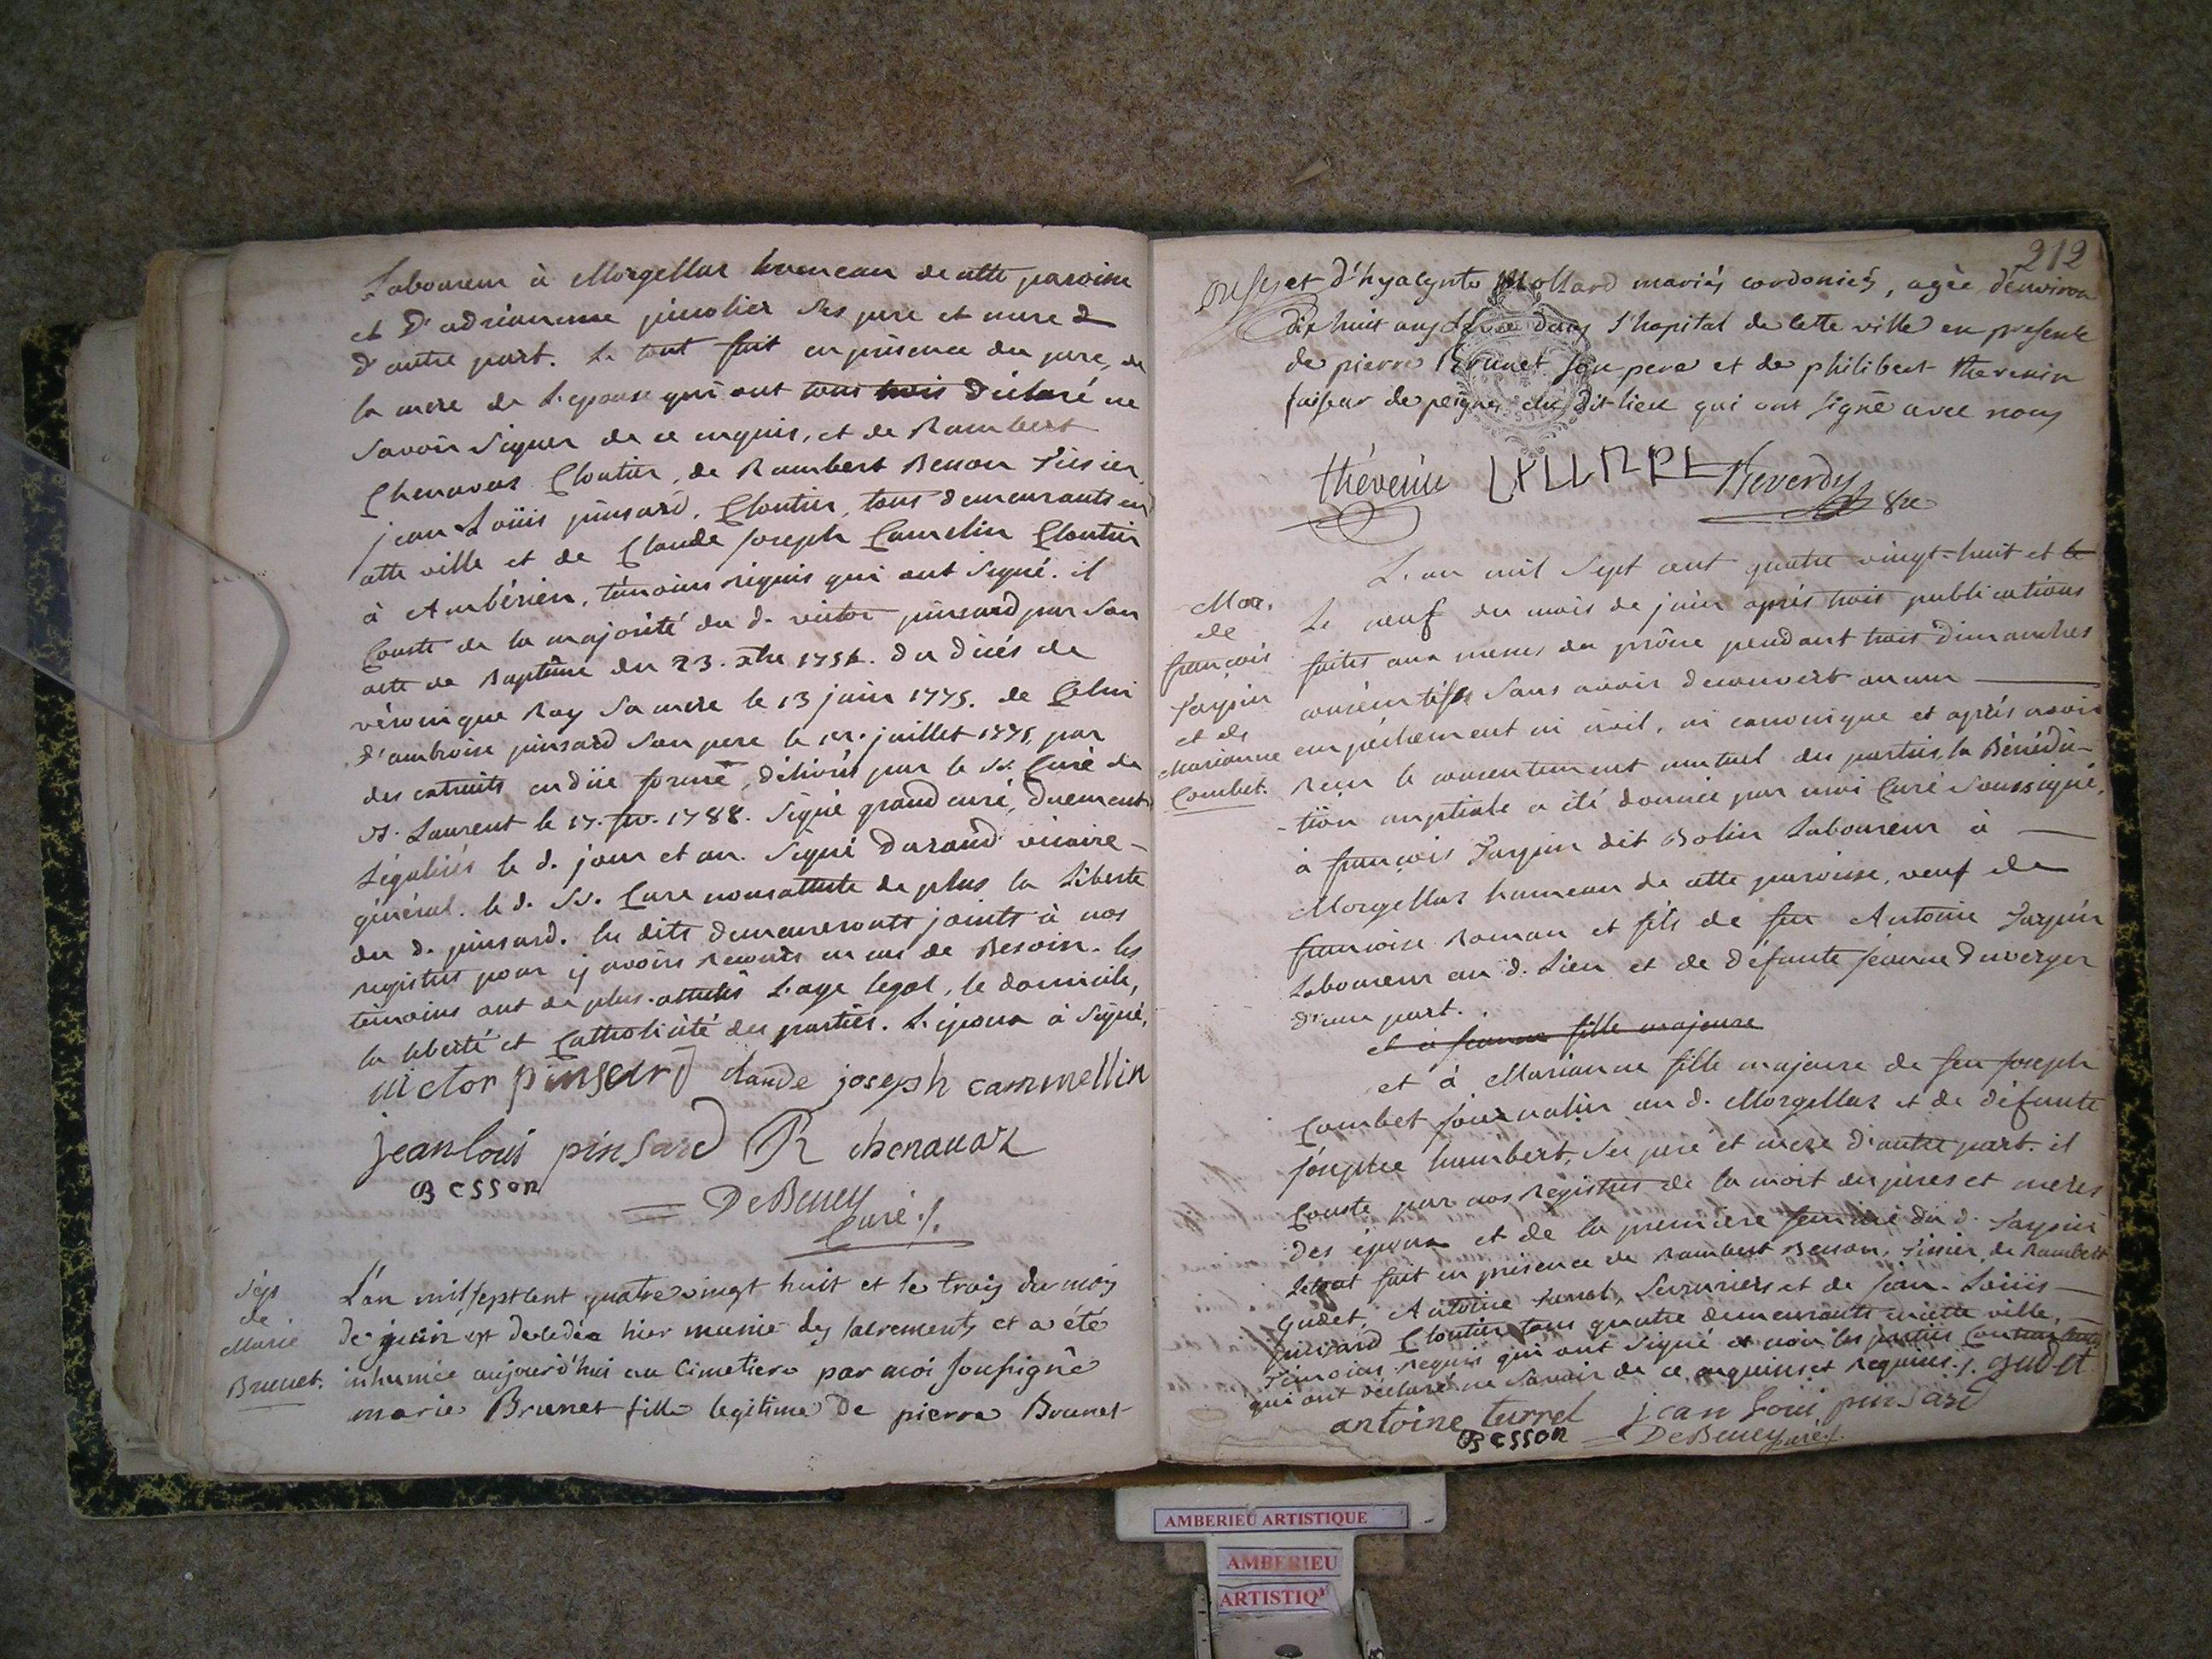 Laboureur à Morgellas hameau de cette paroisse
et d'adrianne junolier ses pere et mere
d'autre part. Le tout fait en présence du pere, de
la mere de L'epouse qui ont tous trois déclaré ne
savoir signer de ce enquis, et de Rambert
Chenavas Cloutier, de Rambert Besson Tissier,
jean Loüis pinsard, Cloutier, tous demeurants en
cette ville et de Claude joseph Camelin Cloutier
à Ambérieu, témoins requis qui ont signé. il
Conste de la majorité du d. victor pinsard par son
acte de Baptême du 23. xbre 1754. du décés de
véronique Ray sa mere le 13 juin 1775. de Celui
d'ambroise pinsard son pere le 1er. juillet 1775, par
des extraits en düe forme, délivrés par le Sr. Curé de
St. Laurent le 17. fev. 1788. signé grand curé, duement
Légalisés le d. jour et an. signé Durand vicaire-
général. le d. Sr. Curé nous atteste de plus la Liberté
du d. pinsard. les dits demeureronts joints à nos
registres pour y avoir recours en cas de Besoin. les
témoins ont de plus attestés L'age legal, le domicile,
la liberté et Catholicité des parties. L'epoux à signé,
victor pinsard claude joseph cammellin
jean louis pinsard R chenavaz
Besson
= DeBeney
Curé ./.
Sep
de
Marie
Brunet.
L'an mil sept cent quatre vingt huit et le trois du mois
de juin est decedée hier munie des sacrements et a été
inhumée aujourd'hui au Cimetiere par moi soussigné
marie Brunet fille legitime de pierre Brunet
212
et d'hyacynte Mollard mariés cordoniés, agée d'environ
dix huit ans dans l'hopital de cette ville en presence
de pierre Brunet son pere et de philibert thevenin
faiseur de peignes du dit lieu qui ont signé avec nous
thévenin Reverdy
Mar.
de
françois
Jarpin
et de
Marianne
Combet.
L'an mil sept cent quatre vingt-huit et le
Le neuf du mois de juin aprés trois publications
faites aux messes du prône pendant trois Dimanches
consécutifs, sans avoir decouvert aucun
empéchement ni civil, ni canonique et aprés avoir
Reçu le consentement mutuel des parties, la Bénédic-
-tion nuptiale a été donnée par moi Curé soussigné,
à françois Jarpin dit Bolin Laboureur à
Morgellas hameau de cette paroisse, veuf de
françoise Roman et fils de feu Antoine Jarpin
Laboureur au d. Lieu et de défunte jeanne Duverger
d'une part.
et à jeanne fille majeure
et à Marianne fille majeure de feu joseph
Combet journalier au d. Morgellas et de défunte
josephte humbert, ses pere et mere d'autre part. il
Conste par nos Registres de la mort des péres et meres
des époux et de la premiere femme du d. Jarpin
Le tout fait en présence de Rambert Besson, Tissier, de Rambert
Gudet, Antoine Turrel, serruriers et de jean-Loüis
pinsard Cloutier, tous quatre demeurants en cette ville,
Témoins requis qui ont signé et non les parties
qui ont déclaré ne savoir de ce enquises et requises ./. gudet
antoine turrel jean Loui pinsard
Besson = DeBeney curé ./.
AMBERIEU ARTISTIQUE
AMBERIEU
ARTISTIQ